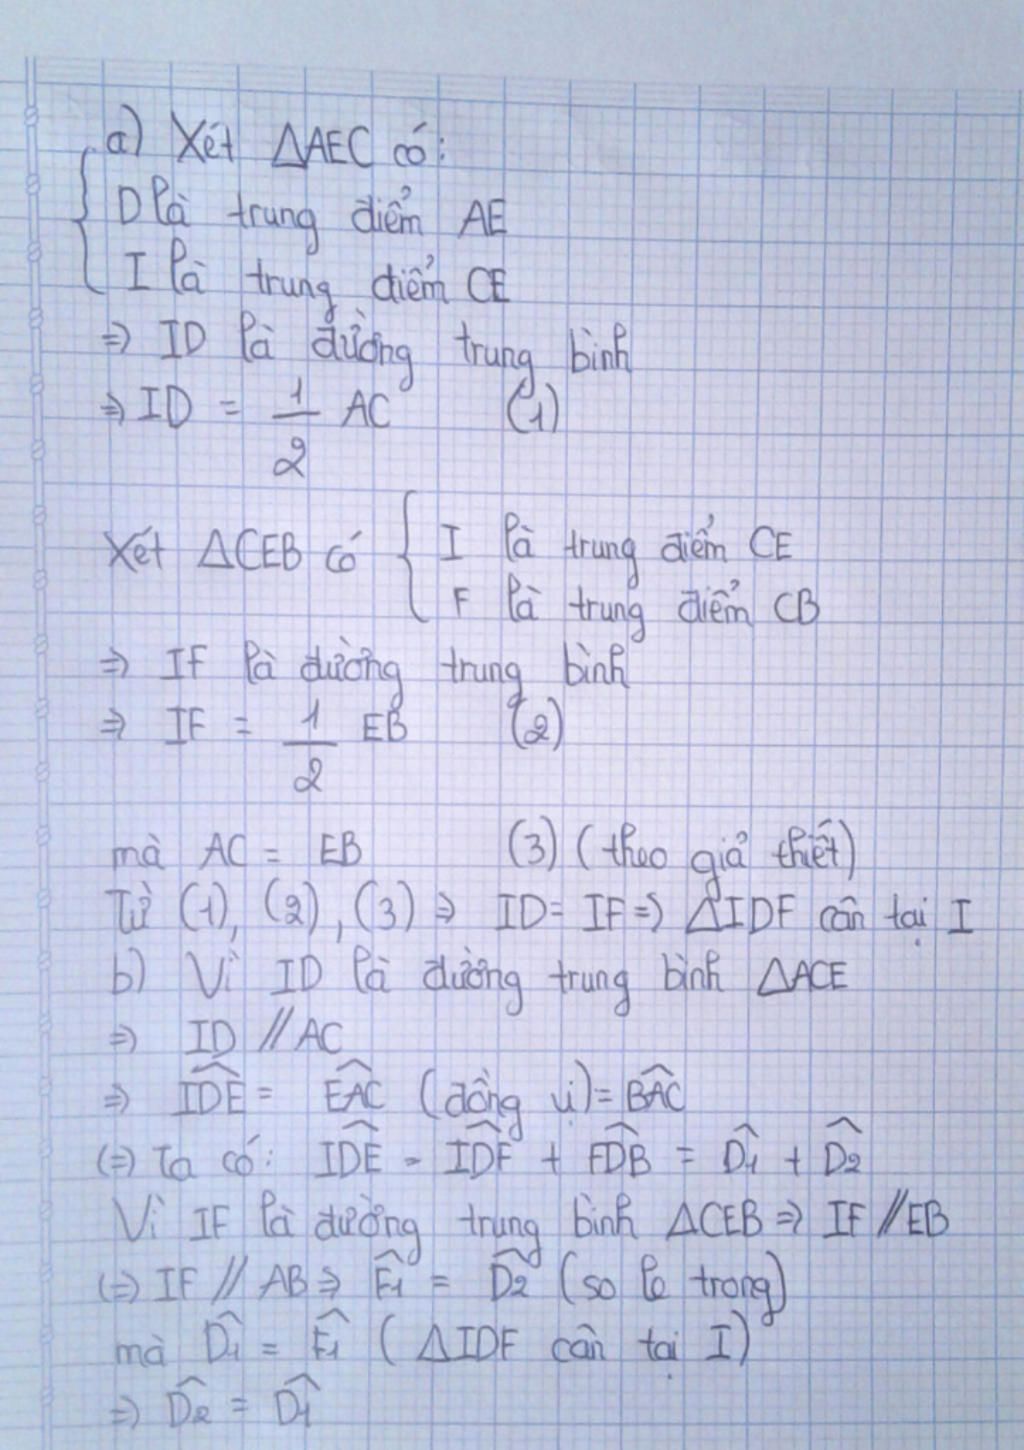 a) Xét ΔAEC có:
D là trung điểm AE
I là trung điểm CE
⇒ ID là đường trung bình
⇒ ID = 1/2 AC (1)
Xét ΔCEB có { I là trung điểm CE
F là trung điểm CB
⇒ IF là đường trung bình
⇒ IF = 1/2 EB (2)
mà AC = EB (3) (theo giả thiết)
Từ (1), (2), (3) ⇒ ID = IF ⇒ ΔIDF cân tại I
b) Vì ID là đường trung bình ΔACE
⇒ ID // AC
⇒ \widehat{IDE} = \widehat{EAC} (đồng vị) = \widehat{BAC}
(=) Ta có: \widehat{IDE} = \widehat{IDF} + \widehat{FDB} = \widehat{D1} + \widehat{D2}
Vì IF là đường trung bình ΔCEB ⇒ IF // EB
(=) IF // AB ⇒ \widehat{F1} = \widehat{D2} (so le trong)
mà \widehat{D1} = \widehat{F1} (ΔIDF cân tại I)
⇒ \widehat{D2} = \widehat{D1}